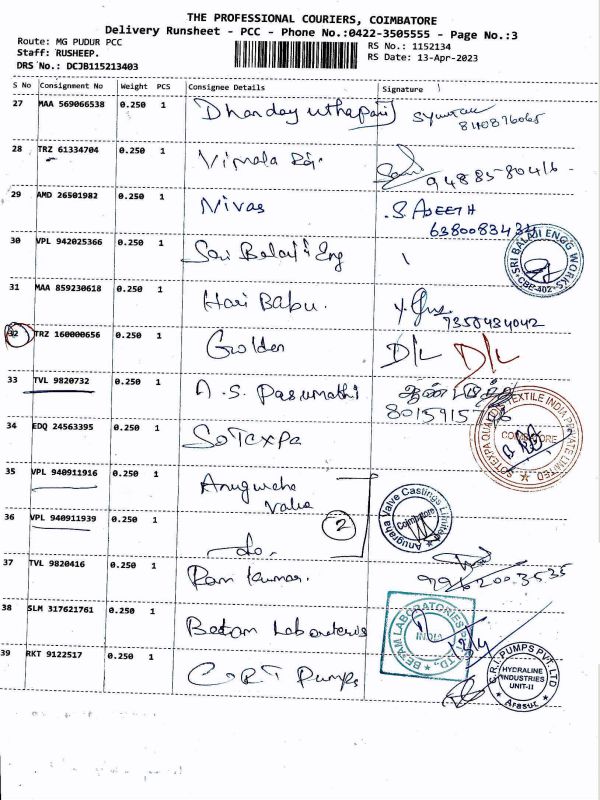 THE PROFESSIONAL COURIERS, COIMBATORE
Delivery Runsheet - PCC - Phone No.:0422-3505555 - Page No.:3
Route: MG PUDUR PCC
Staff: RUSHEEP.
DRS No.: DCJB115213403
RS No.: 1152134
RS Date: 13-Apr-2023
S No Consignment No Weight PCS Consignee Details Signature
27 MAA 569066538 0.250 1 Dhandayuthapani
28 TRZ 61334704 0.250 1 Vimala Raj.
94885-80416
29 AMD 26501982 0.250 1 Nivas S. AJEETH
6380083434
30 VPL 942025366 0.250 1 Sri Balaji Eng
SRI BALAJI ENGG WORKS
CBE-402
31 MAA 859230618 0.250 1 Hari Babu.
7358434042
32 TRZ 160000656 0.250 1 Golden D/L D/L
33 TVL 9820732 0.250 1 A.S. Pasumathi
34 EDQ 24563395 0.250 1 Sotexpa
SOTEXPA QUALIDIS TEXTILE INDIA PRIVATE LIMITED
COIMBATORE
35 VPL 940911916 0.250 1 Anugraha
Valve
Anugraha Valve Castings Limited
Coimbatore
36 VPL 940911939 0.250 1 do. 2
37 TVL 9820416 0.250 1 Ram Kumar.
38 SLM 317621761 0.250 1 Betam Laboratories
BETAM LABORATORIES PVT. LTD.
INDIA
39 RKT 9122517 0.250 1 C.R.I Pumps
C.R.I. PUMPS PVT. LTD
HYDRALINE
INDUSTRIES
UNIT-II
Arasur